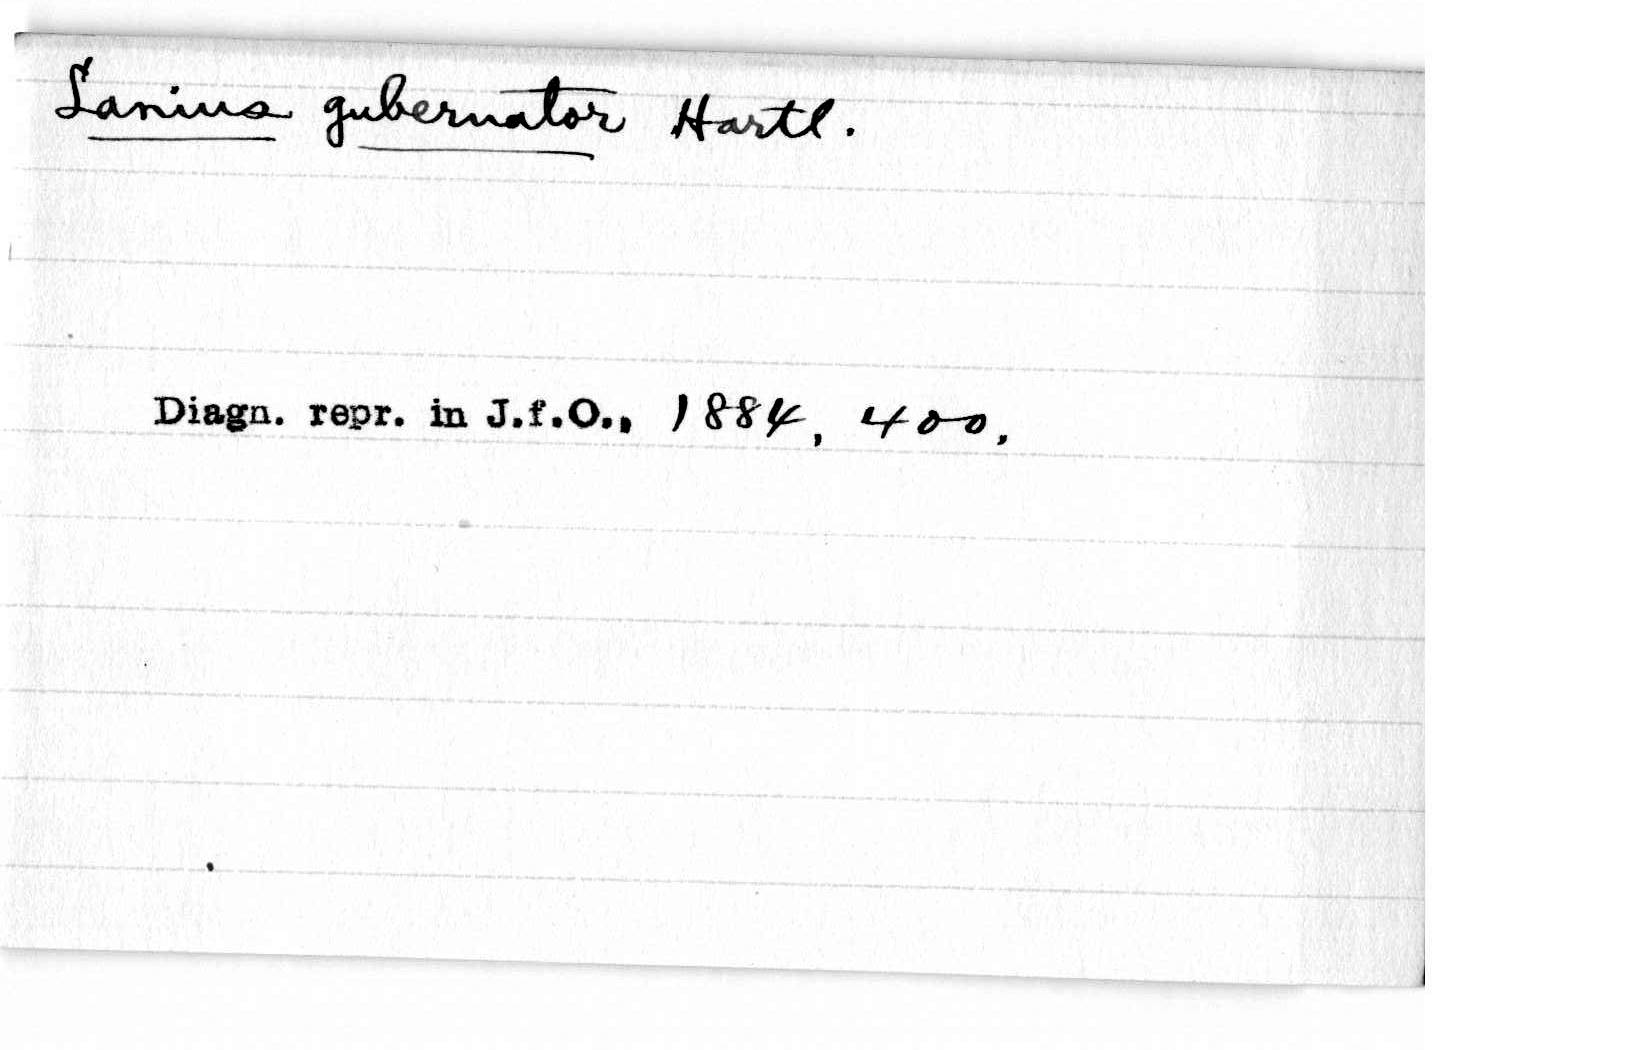 Lanius gubernator Hartl.
Diagn. repr. in J.f.O., 1884, 400.